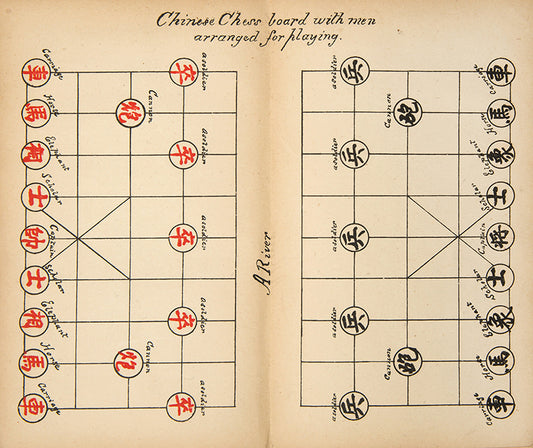 Chinese Chess board with men
arranged for playing.
Carriage
車
Horse
馬
Elephant
相
Scholar
士
Captain
帥
Scholar
士
Elephant
相
Horse
馬
Carriage
車
Cannon
炮
Cannon
炮
a soldier
卒
a soldier
卒
a soldier
卒
a soldier
卒
a soldier
卒
A River
a soldier
兵
a soldier
兵
a soldier
兵
a soldier
兵
a soldier
兵
Cannon
砲
Cannon
砲
車
Carriage
馬
Horse
象
Elephant
士
Scholar
将
Captain
士
Scholar
象
Elephant
馬
Horse
車
Carriage